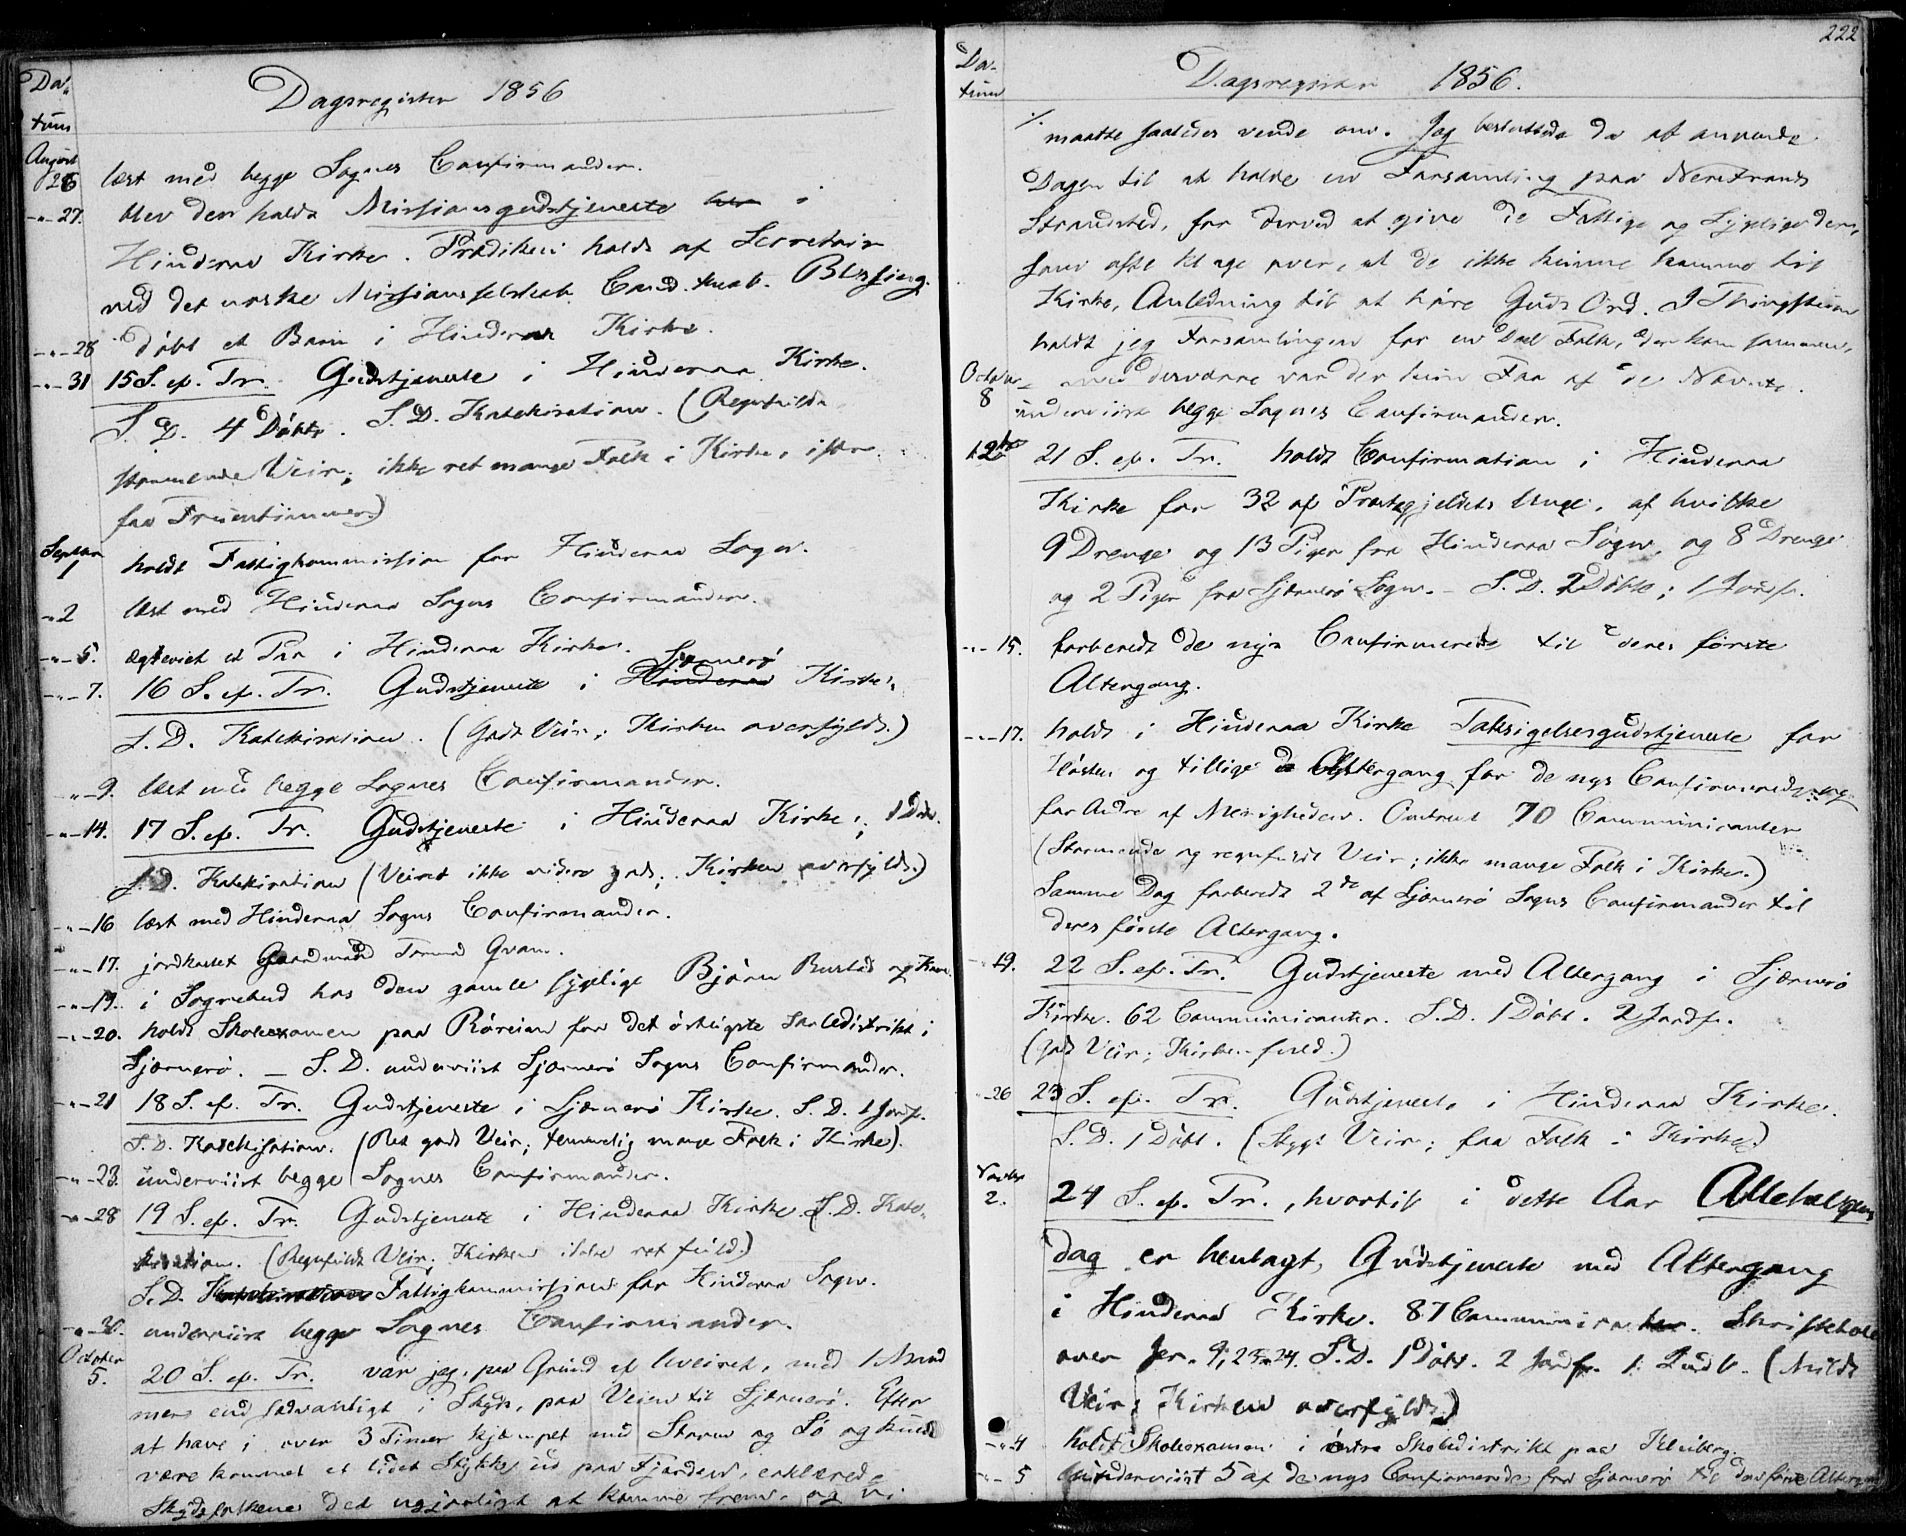 Da-
tum
Dagsregister 1856
August
26 læst med begge Sognes Confirmander.
-"-27. blev der holdt Missionsgudstjeneste her i
Hinderaa Kirke. Prædiken holdt af Secretair
ved det norske Missionsselskab Cand. theol. Blessing.
-"-28 døbt et Barn i Hinderaa Kirke.
-"-31 15 S. ef. Tr. Gudstjeneste i Hinderaa Kirke.
S. D. 4 Døbte. S. D. Katekisation. (Regnfuldt
stormende Veir; ikke ret mange Folk i Kirke, især
faa Fruentimmer.)
Septbr
1 holdt Fattigkommission for Hinderaa Sogn.
-"-2 læst med Hinderaa Sogns Confirmander.
-"-5. ægteviet et Par i Hinderaa Kirke.
Sjærnerø
-"-7. 16 S. ef. Tr. Gudstjeneste i Hinderaa Kirke.
S. D. Katekisation. (Godt Veir; Kirken overfyldt.)
-"-9. læst med begge Sognes Confirmander.
-"-14. 17 S. ef. Tr. Gudstjeneste i Hinderaa Kirke; 1 Døbt.
S. D. Katekisation (Veiret ikke videre godt; Kirken overfyldt.)
-"-16 læst med Hinderaa Sogns Confirmander.
-"-17. jordkastet Gaardmand Tormod Qvam.
-"-19. i Sognebud hos den gamle sygelige Bjørn Bustad og Kone.
-"-20. holdt Skoleexamen paa Røreim for det østligste Skoledistrikt i
Sjærnerø. _ S. D. underviist Sjærnerø Sogns Confirmander.
-"-21 18 S. ef. Tr. Gudstjeneste i Sjærnerø Kirke. S. D. 1 Jordf.
S. D. Katekisation. (Ret godt Veir; temmelig mange Folk i Kirke).
-"-23. underviist begge Sognes Confirmander.
-"-28 19 S. ef. Tr. Gudstjeneste i Hinderaa Kirke. S. D. Kate-
kisation. (Regnfuldt Veir; Kirken ikke ret fuld.)
S. D. Katekisation Fattigkommission for Hinderaa Sogn.
-"-30. underviist begge Sognes Confirmander.
October
5. 20 S. ef. Tr. var jeg, paa Grund af Uveiret, med 1 Mand
mere end sædvanligt i Skyds, paa Veien til Sjærnerø. Efter
at have i over 3 Timer kjæmpet med Storm og Sø og kuns
være kommet et lidet Stykke ud paa Fjorden, erklærede
Skydsfolkene det ugjørligt at komme frem, og vi
222
Da-
tum
Dagsregister 1856.
./. maatte saaledes vende om. Jeg besluttede da at anvende
Dagen til at holde en Forsamling paa Nerstrands
Strandsted, for derved at give de Fattige og Sygelige der,
som ofte klage over, at de ikke kunne komme til
Kirke, Anledning til at høre Guds Ord. I Thingstuen
holdt jeg Forsamlingen for en Deel Folk, der kom sammen,
men desværre var der kun Faa af de Nævnte.
October
8 underviist begge Sognes Confirmander.
12te 21 S. ef. Tr. holdt Confirmation i Hinderaa
Kirke for 32 af Præstegjeldets Unge, af hvilke
9 Drenge og 13 Piger fra Hinderaa Sogn, og 8 Drenge
og 2 Piger fra Sjærnerø Sogn. - S. D. 2 Døbte; 1 Jordf.
-"-15. forberedt de nys Confirmerede til deres første
Altergang.
-"-17. holdt i Hinderaa Kirke Taksigelsesgudstjeneste for
Høsten og tillige Altergang for de nys Confirmerede og
for Andre af Menigheden. Omtrent 70 Communicanter
(Stormende og regnfuldt Veir; ikke mange Folk i Kirke.)
Samme Dag forberedt 2de af Sjærnerø Sogns Confirmander til
deres første Altergang.
-19. 22 S. ef. Tr. Gudstjeneste med Altergang i Sjærnerø
Kirke. 62 Communicanter. S. D. 1 Døbt. 2 Jordf.
(godt Veir; Kirken fuld.)
-"-26 23 S. ef. Tr. Gudstjeneste i Hinderaa Kirke.
S. D. 1 Døbt. (Stygt Veir; faa Folk i Kirke.)
Novbr
2. 24 S. ef. Tr., hvortil i dette Aar Allehelgens
dag er henlagt, Gudstjeneste med Altergang
i Hinderaa Kirke. 87 Communicanter. Skriftetale
over Jer. 9, 23-24. S. D. 1 Døbt. 2 Jordf. 1 Introd. (Mildt
Veir; Kirken overfyldt.)
-"-4 holdt Skoleexamen i østre Skoledistrikt paa Kleiberg.
-"-5 underviist 5 af de nys Confirmerede fra Sjærnerø til deres første Altergang